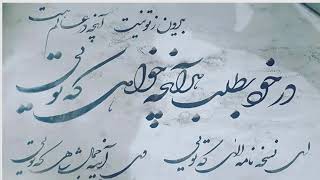 بیرون ز تو نیست آنچه در عالم هست
در خود بطلب هر آنچه خواهی که تویی
ای نسخه نامه الهی که تویی
وی آینه جمال شاهی که تویی